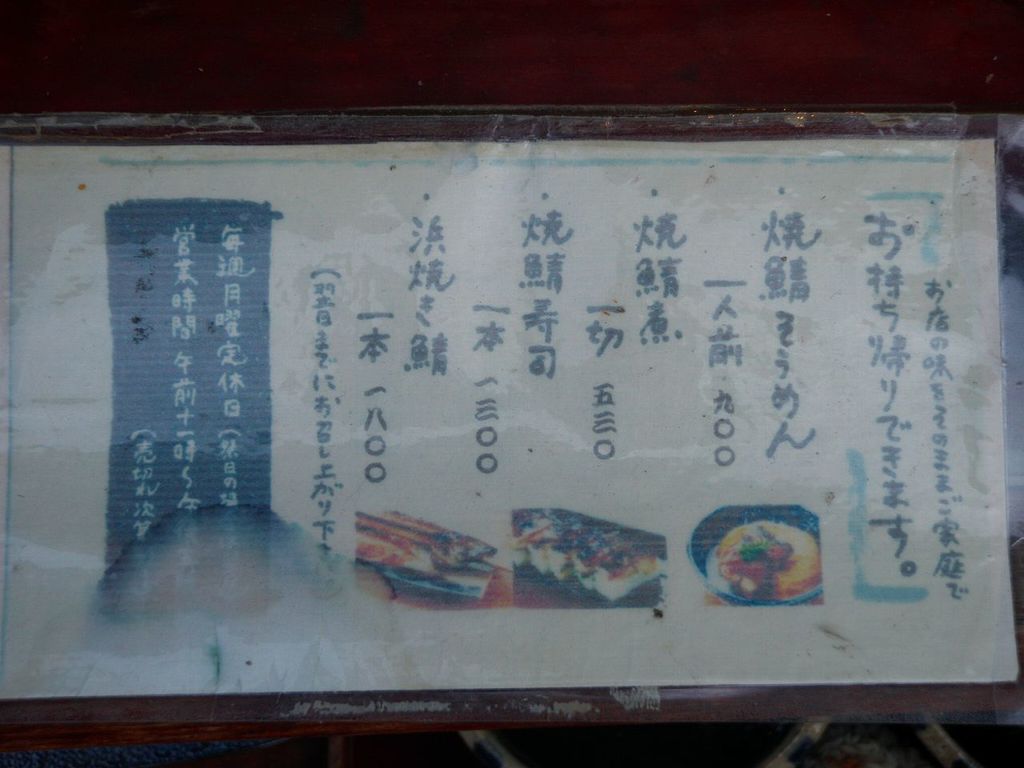 お店の味そのままご家庭で
お持ち帰りできます。
・焼鯖そうめん
一人前 九〇〇
・焼鯖煮
一切 五三〇
・焼鯖寿司
一本 一三〇〇
・浜焼き鯖
一本 一八〇〇
(翌日までにお召し上がり下さ
毎週月曜定休日(祭日の場
営業時間 午前十一時〜午
(売切れ次第